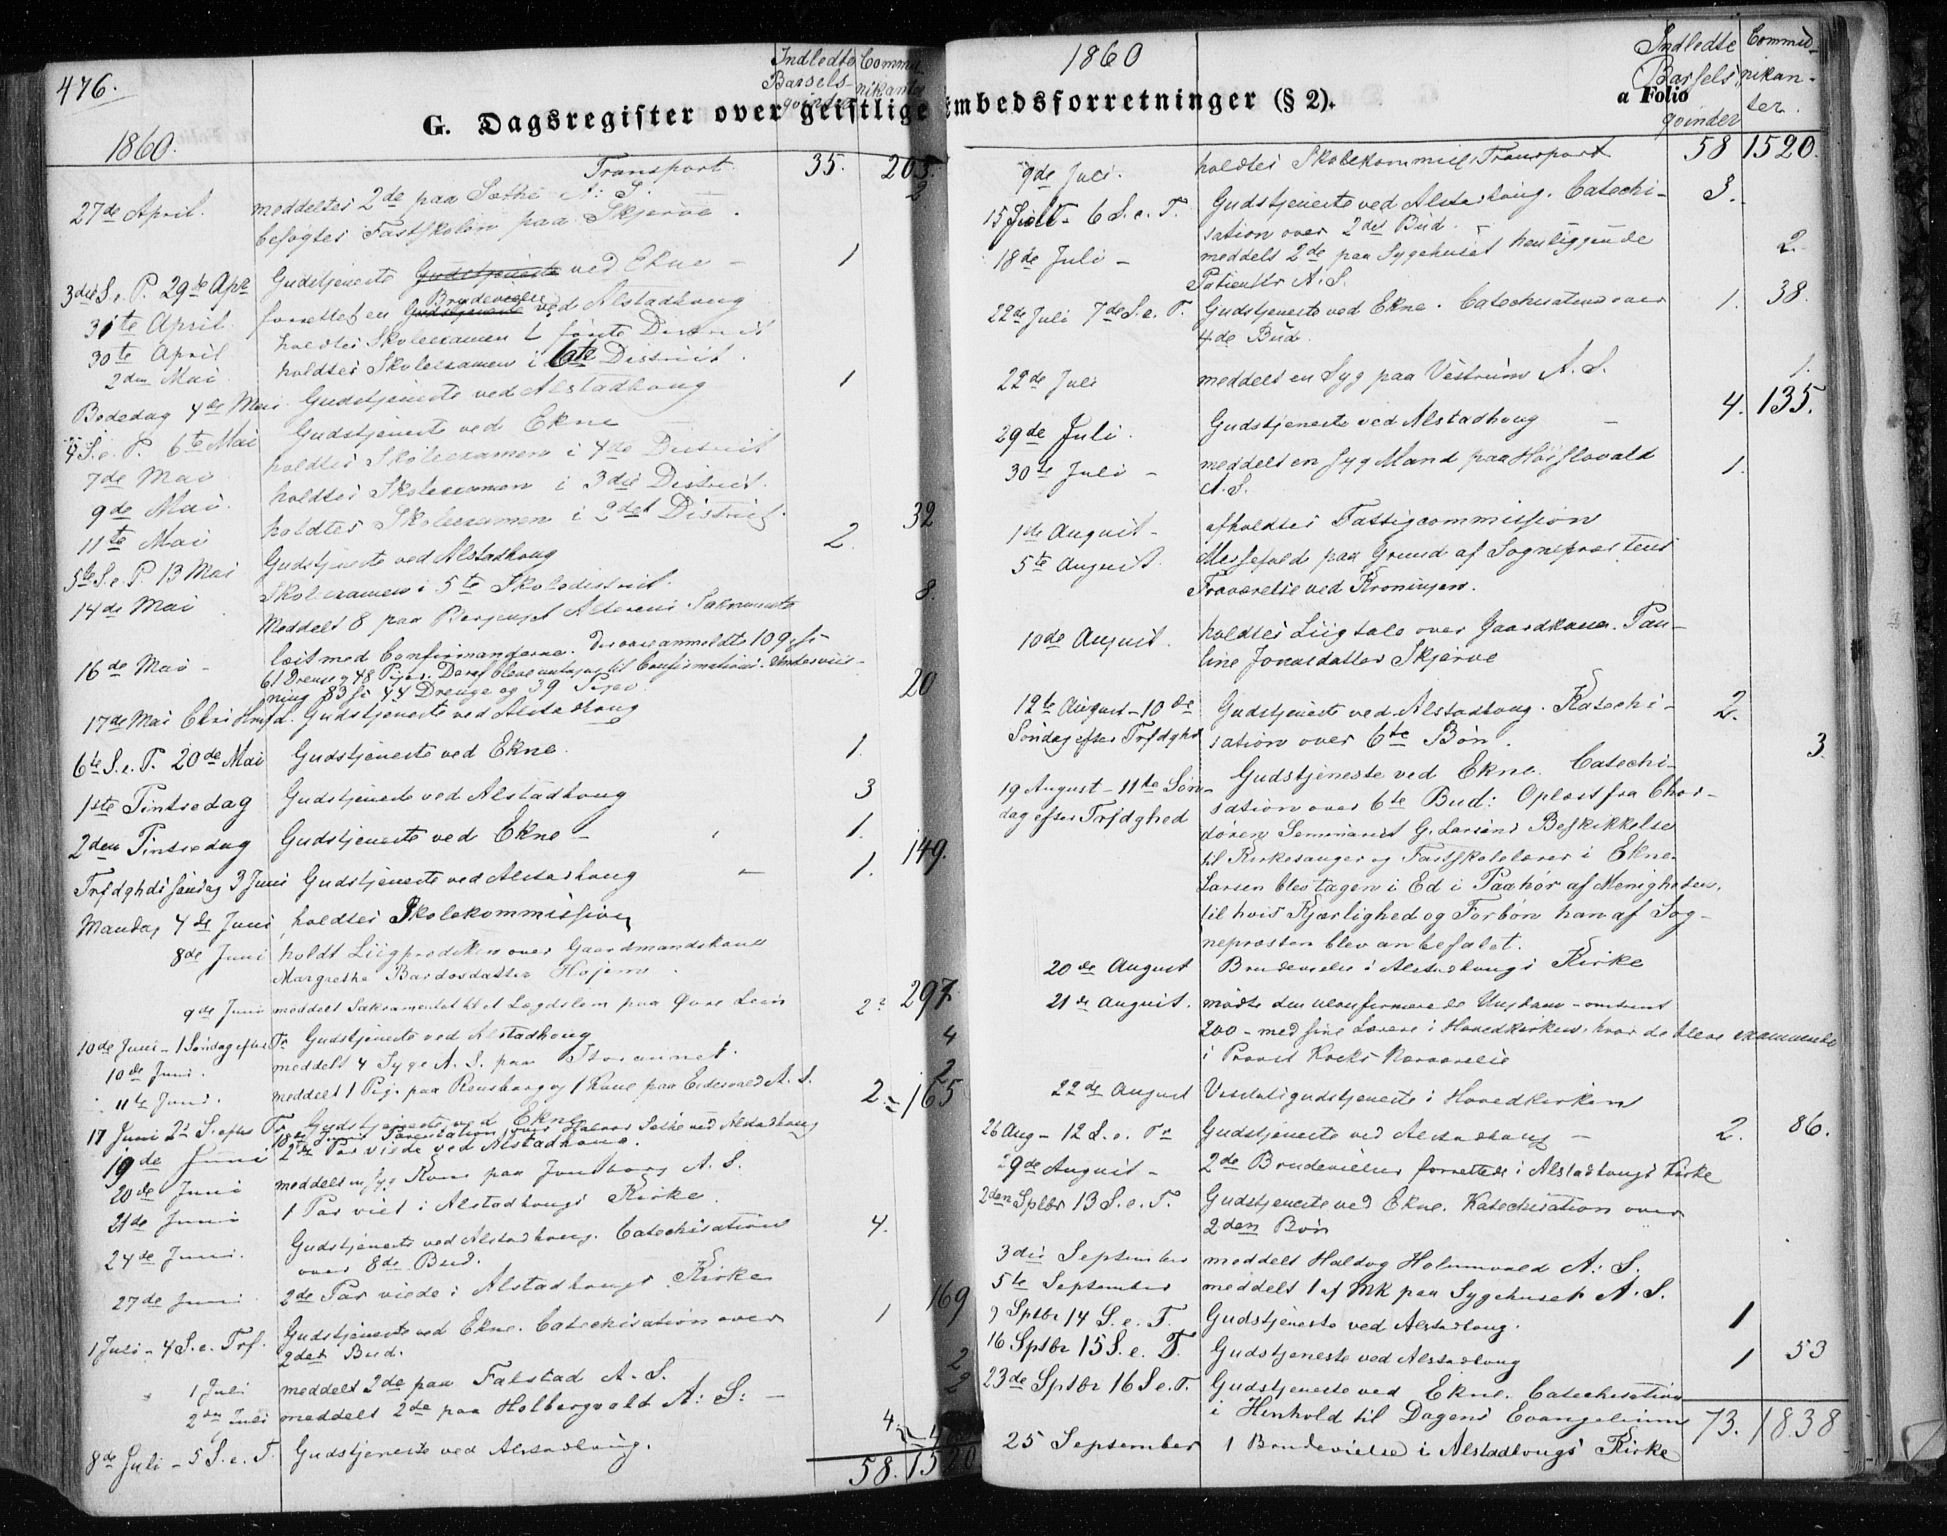 476.
Indledte Commu-
Barsels- nikanter
qvinder
G. Dagsregister over geistlige
1860.
Transport. 35. 205.
27de April. meddeltes 2de paa Sæthe A: S. 2
besøgtes Fastskolen paa Skjerve.
3die S. e. P. 29de Apr Gudstjeneste ved Ekne - 1
Brudevielse
30te April forrettet en ved Alstadhoug
30te April holdtes Skoleexamen i første District
2den Mai holdtes Skoleexamen i 6te District.
Bededag 4de Mai Gudstjeneste ved Alstadhoug 1
4 S. e. P. 6te Mai Gudstjeneste ved Ekne
7de Mai holdtes Skoleexamen i 4de District
9de Mai. holdtes Skoleexamen i 3die District.
11te Mai holdtes Skoleexamen i 2det District. 32
5te S. e. P. 13 Mai Gudstjeneste ved Alstadhoug 2.
14de Mai Skoleexamen i 5te Skoledistrict.
Meddelt 8 paa Alterens Sakramente 8.
16de Mai - læst med Confirmanderne. Der vare anmeldte 109 f:
61 Drenge og 48 Piger. Deraf bleve antagne til Confirmations-Underviis-
ning 83 f: 44 Drenge og 39 Piger.
17de Mai Chri Hmfd. Gudstjeneste ved Alstadhoug 20
6te S. e. P. 20de Mai Gudstjeneste ved Ekne. 1.
1ste Pintsedag Gudstjeneste ved Alstadhoug 3
2den Pintsedag Gudstjeneste ved Ekne - 1. 149.
Trfdghds søndag 3 Juni Gudstjeneste ved Alstadhoug - 1.
Mandag 4de Juni holdtes Skolekommission
8de Juni holdt Liigprædiken over Gaardmandskone
Margrethe Bardosdatter Højem.
9de Juni meddelt Sakramentet til et Lægdslem paa Øvre Lein 2: 297
10de Juni - 1 Søndag efter Tr. Gudstjeneste ved Alstadhoug 4
10de Juni. meddelt 4 Syge A. S. paa
11te Juni. meddelt 1 Pige paa og 1 Kone paa A. S. 2
17 Juni 2den S. efter Tr Gudstjeneste ved Ekne 2 165
18de Juni Parentation over Halvor Sæthe ved Alstadhoug
19de Juni 2de Par viede ved Alstadhoug.
20de Juni meddelt en syg Kone paa A. S.
21de Juni 1 Par viet i Alstadhougs Kirke.
24de Juni. Gudstjeneste ved Alstadhoug. Catechisation 4.
over 8de Bud.
27de Juni 2de Par viede i Alstadhougs Kirke
1 Juli - 4 S. e. Trf. Gudstjeneste ved Ekne. Catechisation over 1 169
2det Bud.
1 Juli meddelt 2de paa Falstad A. S. 2
2den Juli meddelt 2de paa Holbergvald A: S: - 2
8de Juli - 5 S. e. T. Gudstjeneste ved Alstadhoug. 4
58. 1520
1860
Indledte Commu-
Barsels nikan-
qvinder ter.
Embedsforretninger (§ 2). a Folio
58 1520.
9de Juli. holdtes Skolekommiss. Transport
15 Juli - 6 S. e. T. Gudstjeneste ved Alstadhoug. Catechi- 3.
sation over 2det Bud.
18de Juli - meddelt 2de paa Sygehuset henliggende 2.
Patienter A. S.
22de Juli 7de S. e. T. Gudstjeneste ved Ekne. Catechisation over 1. 38.
4de Bud.
22de Juli meddelt en Syg paa Vestrum A. S. 1.
29de Juli. Gudstjeneste ved Alstadhoug - 4. 135.
30te Juli - meddelt en syg Mand paa A. S. 1.
1de August - afholdtes Fattigcommission
5te August. Messefald paa Grund af Sognepræstens
Fraværelse ved Kroningen.
10de August. holdtes Liigtale over Gaardkone Pau-
line Jonasdatter Skjerve
12te August - 10de Gudstjeneste ved Alstadhoug. Katechi- 2.
Søndag efter Trfdghd sation over 6te Bøn. 3
19 August - 11te Søn- Gudstjeneste ved Ekne. Catechi-
dag efter Trfdghed sation over 6te Bud: Oplæst fra Chor-
døren Seminarist G. Larsens Beskikkelse
til Kirkesanger og Fastskolelærer i Ekne.
Larsen blev tagen i Ed i Paahør af Menigheden,
til hvis Kjærlighed og Forbøn han af Sog-
nepræsten blev anbefalet.
20de August Brudevielse i Alstadhougs Kirke
21de August. mødte den uconfirmerede Ungdom - omtrent
200 - med sine Lærere i Hovedkirken, hvor de bleve examinerede
i Provst Nærværelse
22de August Visitatsgudstjeneste i Hovedkirken
26 Aug - 12 S. e. Tr Gudstjeneste ved Alstadhoug - 2. 86.
29de August - 2de Brudevielser forrettede i Alstadhougs Kirke
2den Sptbr 13 S. e. T. Gudstjeneste ved Ekne. Katechisation over
2den Bøn
3die September meddelt Haldog Holumvald A: S.
5te September meddelt 1 af MK paa Sygehuset A. S.
9 Sptbr 14 S. e. T. Gudstjeneste ved Alstadhoug. 1
16 Sptbr 15 S. e. T. Gudstjeneste ved Alstadhoug 1 53
23de Sptbr 16 S. e. T. Gudstjeneste ved Ekne. Catechisation
i Henhold til Dagens Evangelium 73. 1838
25 September 1 Brudevielse i Alstadhougs Kirke